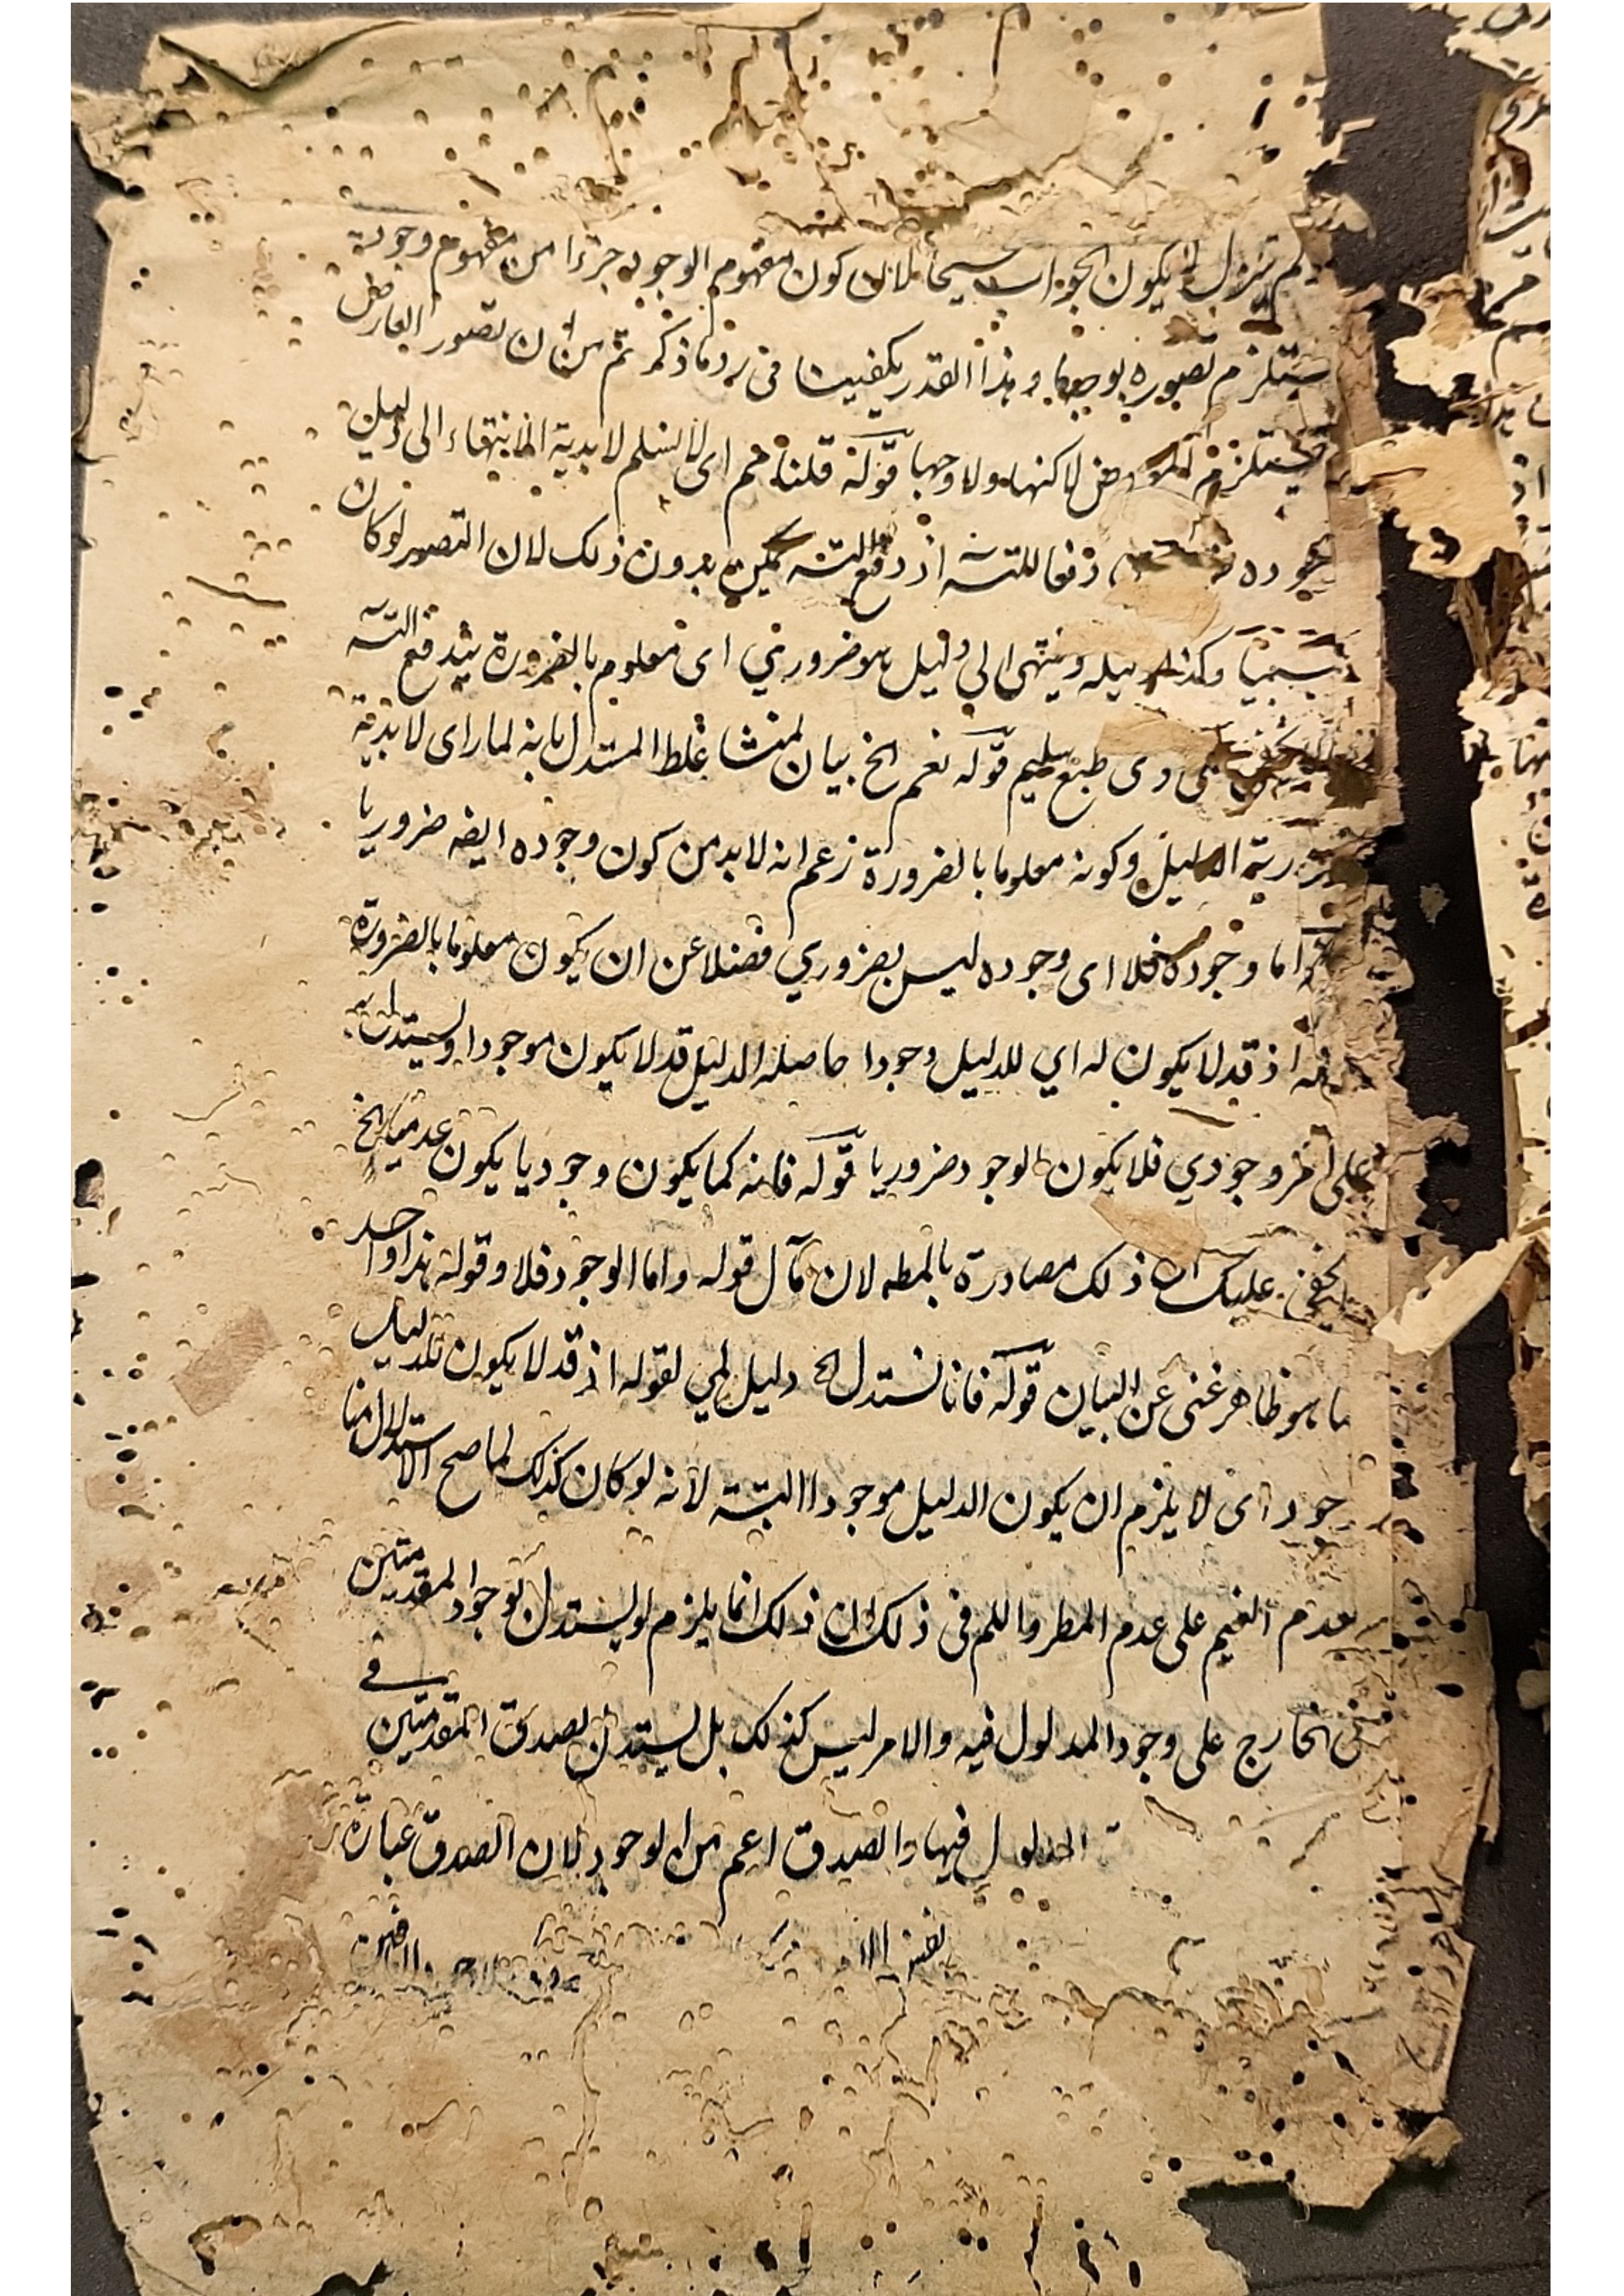 لم يزل ان يكون الجواب صحيحا لان كون مفهوم الوجود جزءا من مفهوم وجوده
يستلزم تصوره بوجه ما وهذا القدر يكفينا فى رد ما ذكر ثم من ان تصور العارض
يستلزم لا كنها ولا وجها قوله قلنا نعم اى لا نسلم لابدية الانتهاء الى دليل
دفعا للتسه اذ دفع التسه يمكن بدون ذلك لان التصور لو كان
وكذا دليله وينتهى الى دليل هو ضروري اى معلوم بالضرورة يندفع التسه
على ذى طبع سليم قوله نعم الخ بيان لمنشا غلط المستدل بانه لما راى لابدية
الدليل وكونه معلوما بالضرورة زعم انه لابد من كون وجوده ايضه ضروريا
اما وجوده فلا اى وجوده ليس بضروري فضلا عن ان يكون معلوما بالضرورة
اذ قد لا يكون له اي للدليل وجودا حاصله الدليل قد لا يكون موجودا ويستدل به
على امر وجودي فلا يكون الوجود ضروريا قوله فانه كما يكون وجوديا يكون عدميا الخ
يخفى عليك ان ذلك مصادرة بالمطه لان مآل قوله واما الوجود فلا وقوله هذا واحد
ما هو ظاهر غنى عن البيان قوله فانا نستدل الخ دليل لمي لقوله اذ قد لا يكون للدليل
وجود اى لا يلزم ان يكون الدليل موجودا البتة لانه لو كان كذلك لما صح الاستدلال منا
بعدم الغيم على عدم المطر واللم فى ذلك ان ذلك انما يلزم لو يستدل بوجود المقدمتين
فى الخارج على وجود المدلول فيه والامر ليس كذلك بل يستدل بصدق المقدمتين فى
المدلول فيها والصدق اعم من الوجود لان الصدق عبارة